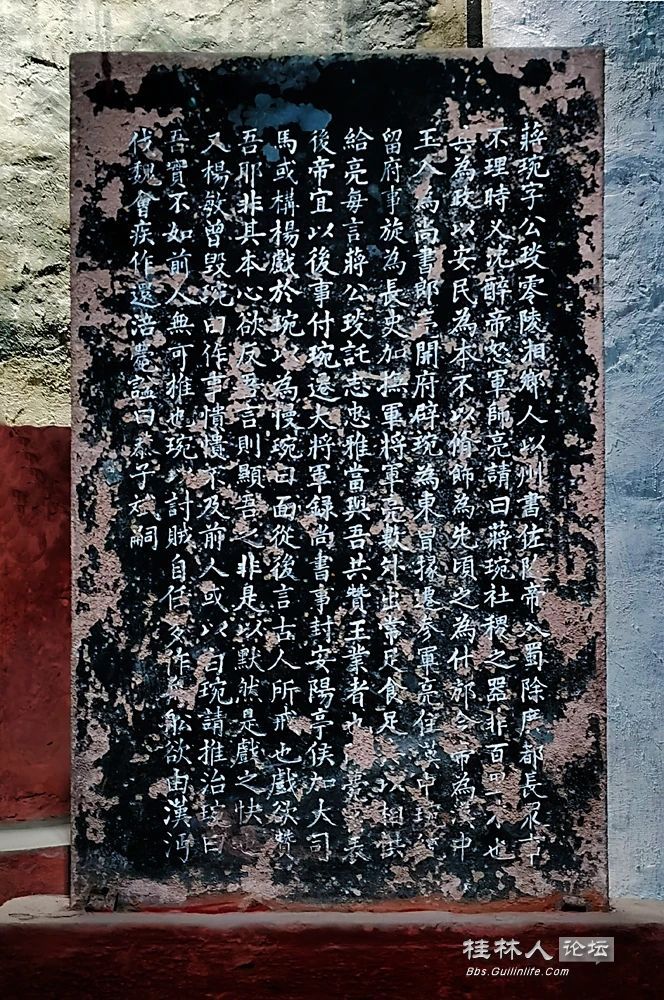 蔣琬字公琰零陵湘鄉人以州書佐隨帝入蜀除廣都長眾事
不理時又沈醉帝怒軍師亮請曰蔣琬社稷之器非百里之才也
其為政以安民為本不以脩飾為先頃之為什邡令帝為漢中
王入為尚書郎亮開府辟琬為東曹掾遷參軍亮住漢中琬統
留府事旋為長史加撫軍將軍亮數外出常足食足 以相供
給亮每言蔣公琰託志忠雅當與吾共贊王業者也 表
後帝宜以後事付琬遷大將軍録尚書事封安陽亭侯加大司
馬或構楊戲於琬以為慢琬曰面從後言古人所戒也戲欲贊
吾耶非其本心欲反吾言則顯吾之非是以默然是戲之快也
又楊敏曾毀琬曰作事憒憒不及前人或以白琬請推治琬曰
吾實不如前人無可推也琬以討賊自任多作舟舩欲由漢沔
伐魏會疾作還涪薨謚曰恭子斌嗣
桂林人论坛
Bbs.Guilinlife.Com